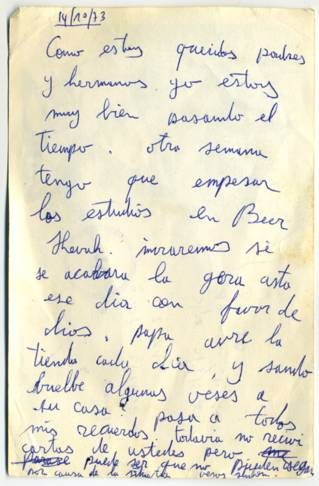 14/10/73
Como estas queridos padres
y hermanos. yo estoy
muy bien pasando el
tiempo. otra semana
tengo que empesar
los estudios en Beer
Shevah. miraremos si
se acabara la gera asta
ese dia con favor de
dios, papa avre la
tienda cada dia, y sando
buelbe algunas veses a
su casa? pasa a todos
mis recuerdos, todavia no recivi
cartas de ustedes pero
puede ser que no pueden llegar
por causa de la